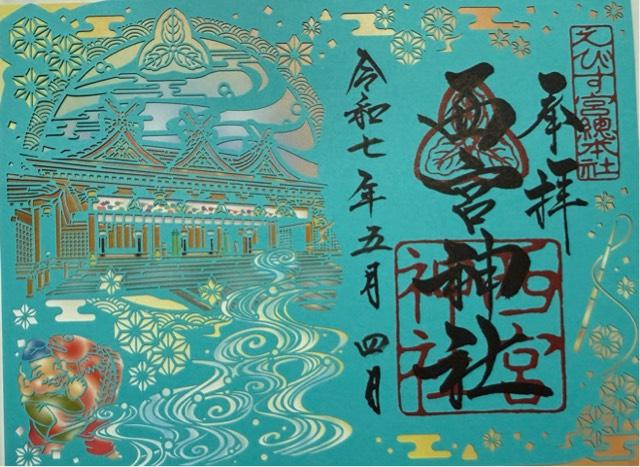 えびす宮總本社
奉拝
西宮神社
西宮
神社
令和七年五月四日